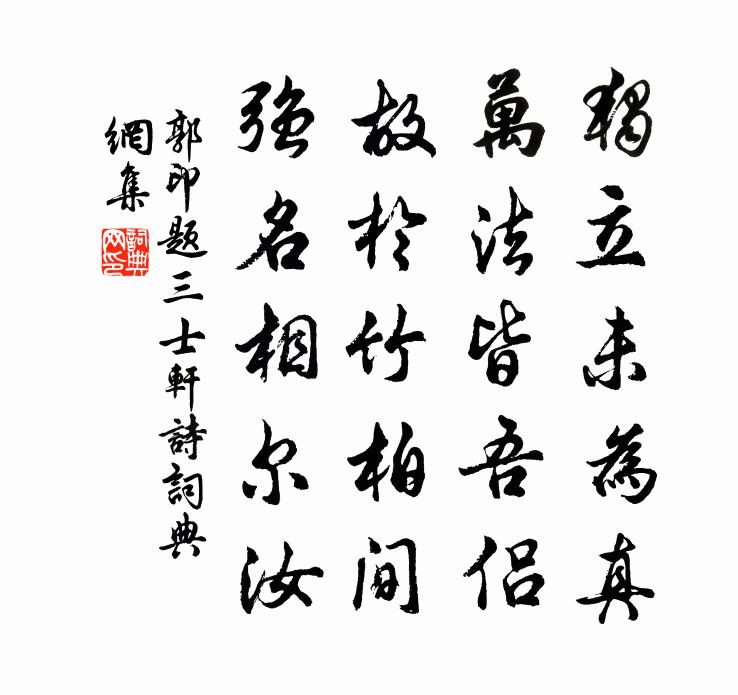 獨立未為真
萬法皆吾侶
故於竹柏間
強名相尔汝
郭印題三士軒詩詞典
網集
詞典網印